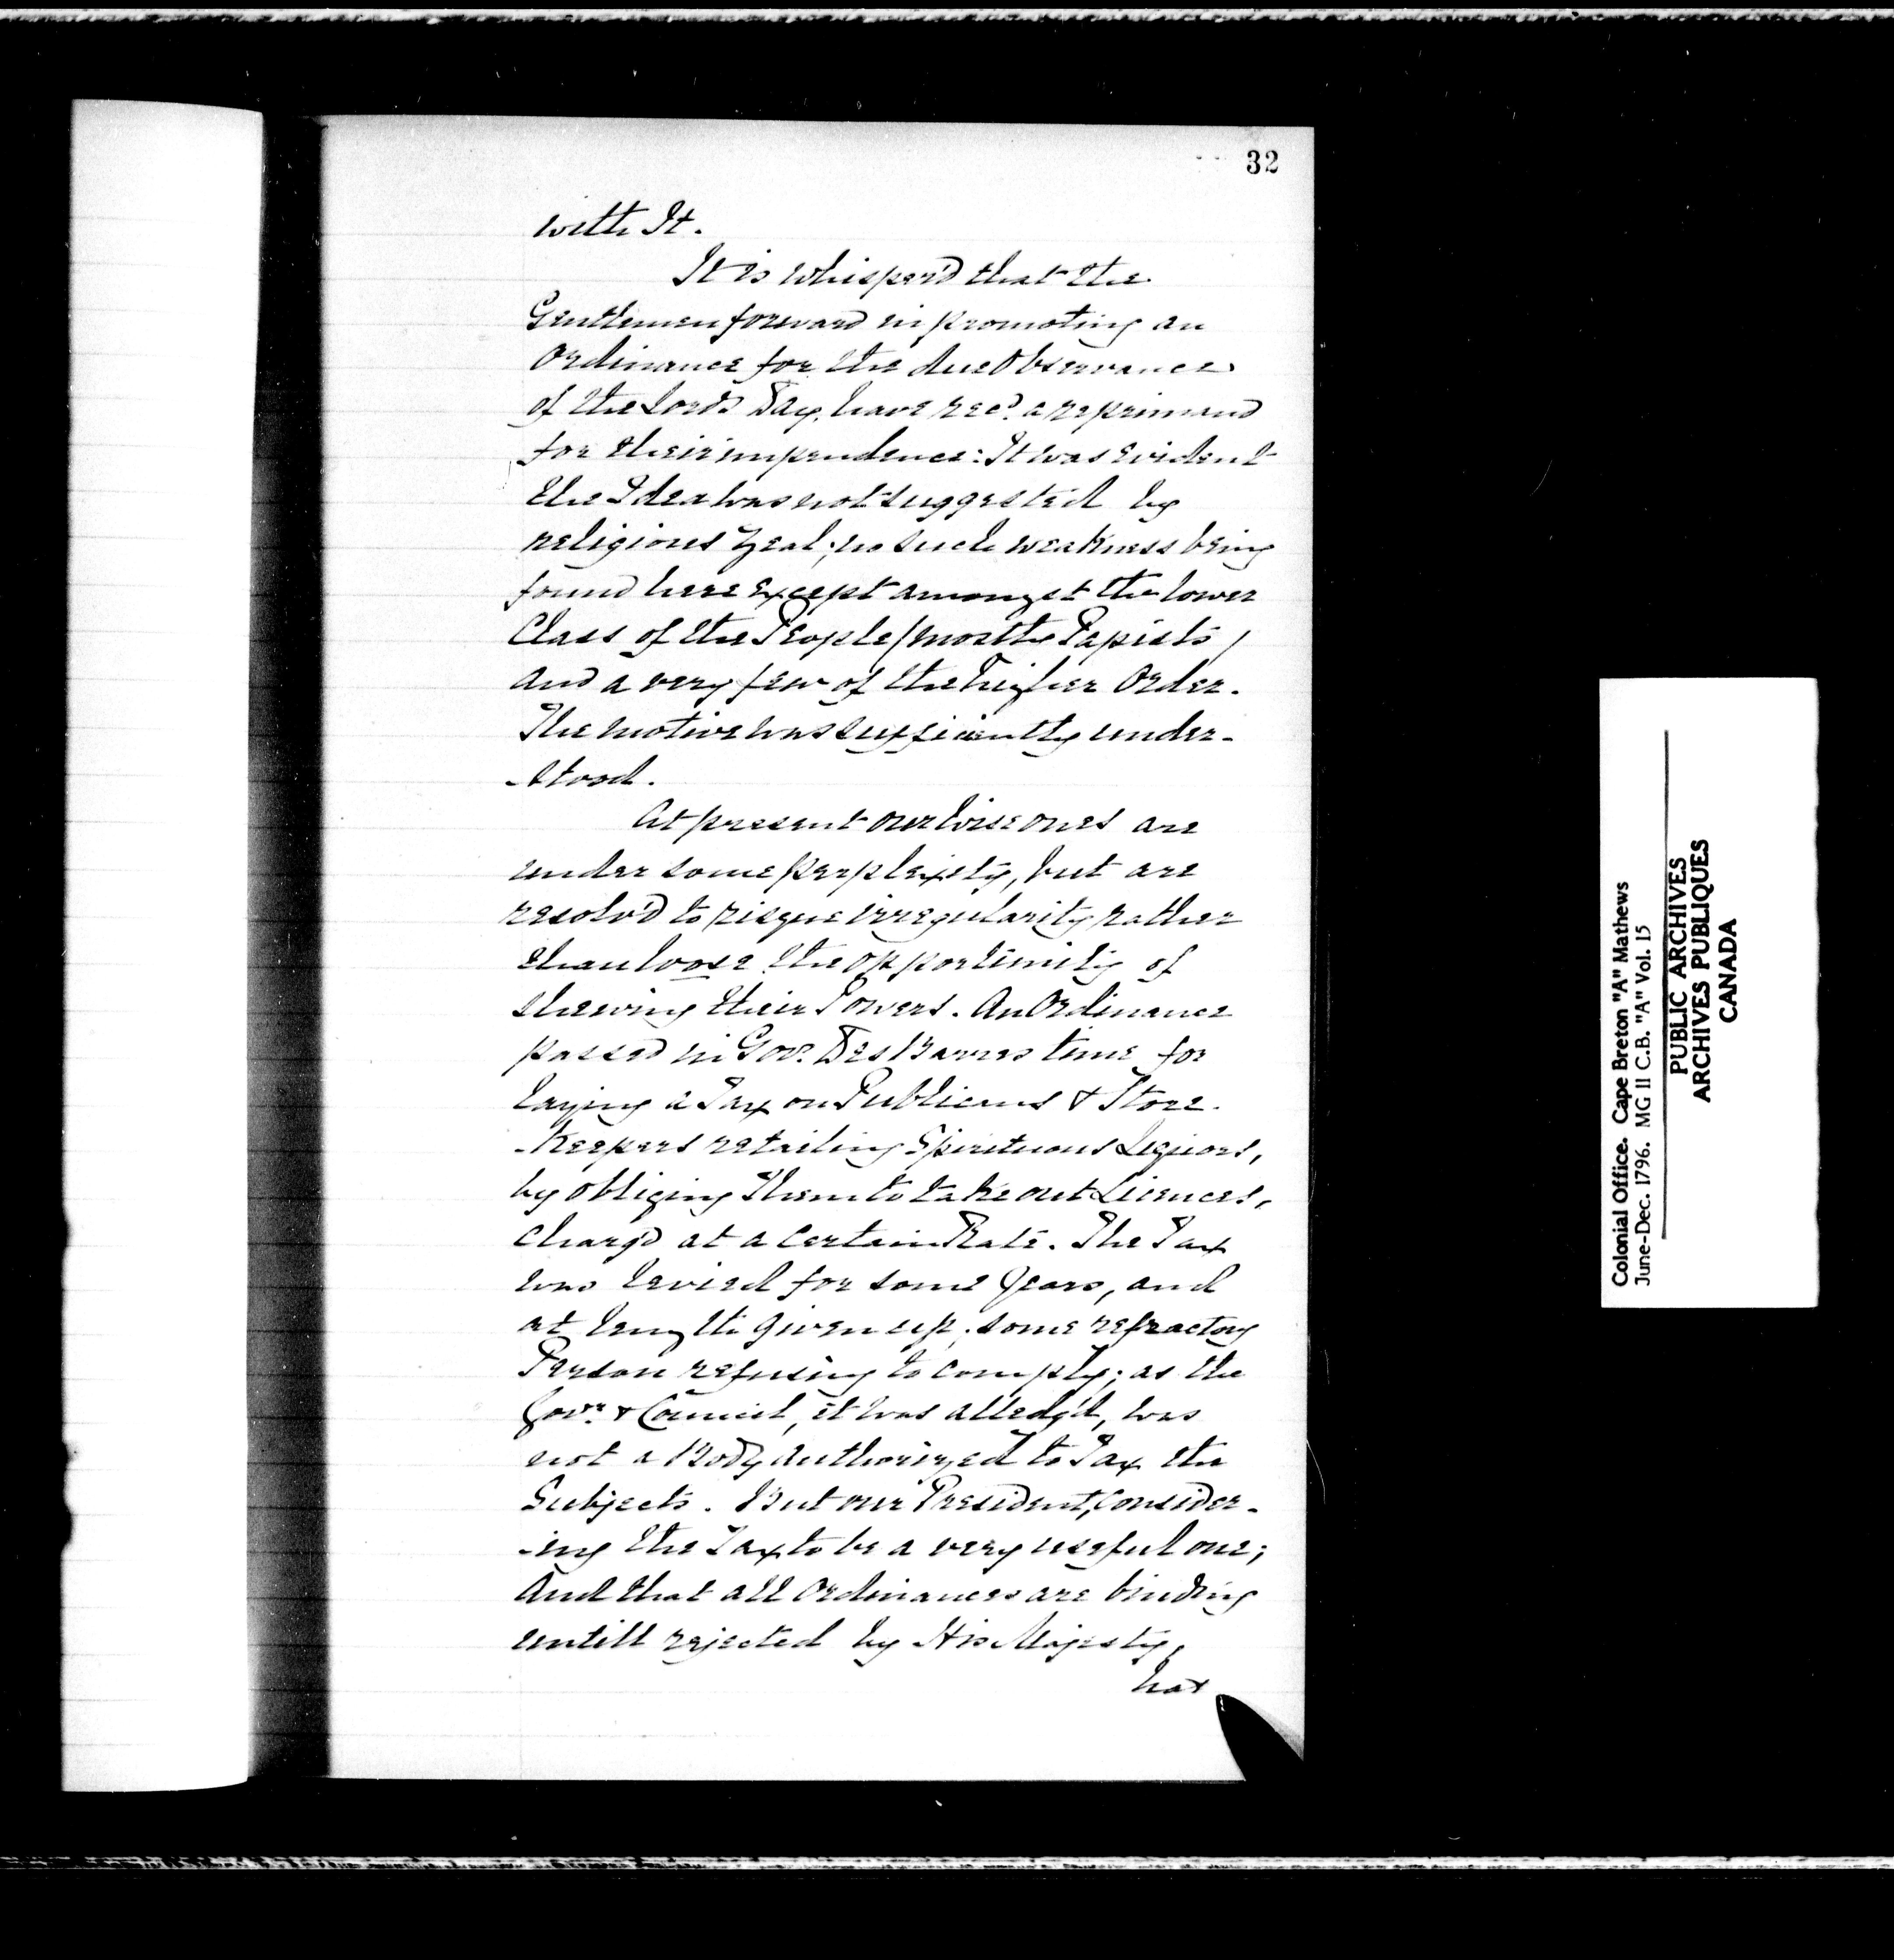 32
with It.
It is whisper'd that the
Gentlemen forward in promoting an
Ordinance for the due Observance
of the Lord's Day, have rec'd. a reprimand
for their imprudence: It was evident
the Idea was not suggested by
religious Zeal; no such weakness being
found here except amongst the lower
Class of the People (mostly Papists)
and a very few of the higher Order.
The motive was sufficiently under-
-stood.
At present our wise ones are
under some perplexity, but are
resolv'd to risque irregularity rather
than loose the opportunity of
shewing their Powers. An Ordinance
passed in Gov. DesBarres time for
laying a Tax on Publicans & Store-
-Keepers retailing Spirituous Liquors,
by obliging Them to take out Licences,
charg'd at a certain Rate. The Tax
was levied for some Years, and
at length given up; some refractory
Person refusing to comply; as the
Govr. & Council, it was alledg'd, was
not a Body authorized to Tax the
Subjects. But our President, consider-
-ing the Tax to be a very useful one;
And that all Ordinances are binding
untill rejected by His Majesty,
has
Colonial Office. Cape Breton "A" Mathews
June-Dec. 1796. MG 11 C.B. "A" Vol. 15
PUBLIC ARCHIVES
ARCHIVES PUBLIQUES
CANADA